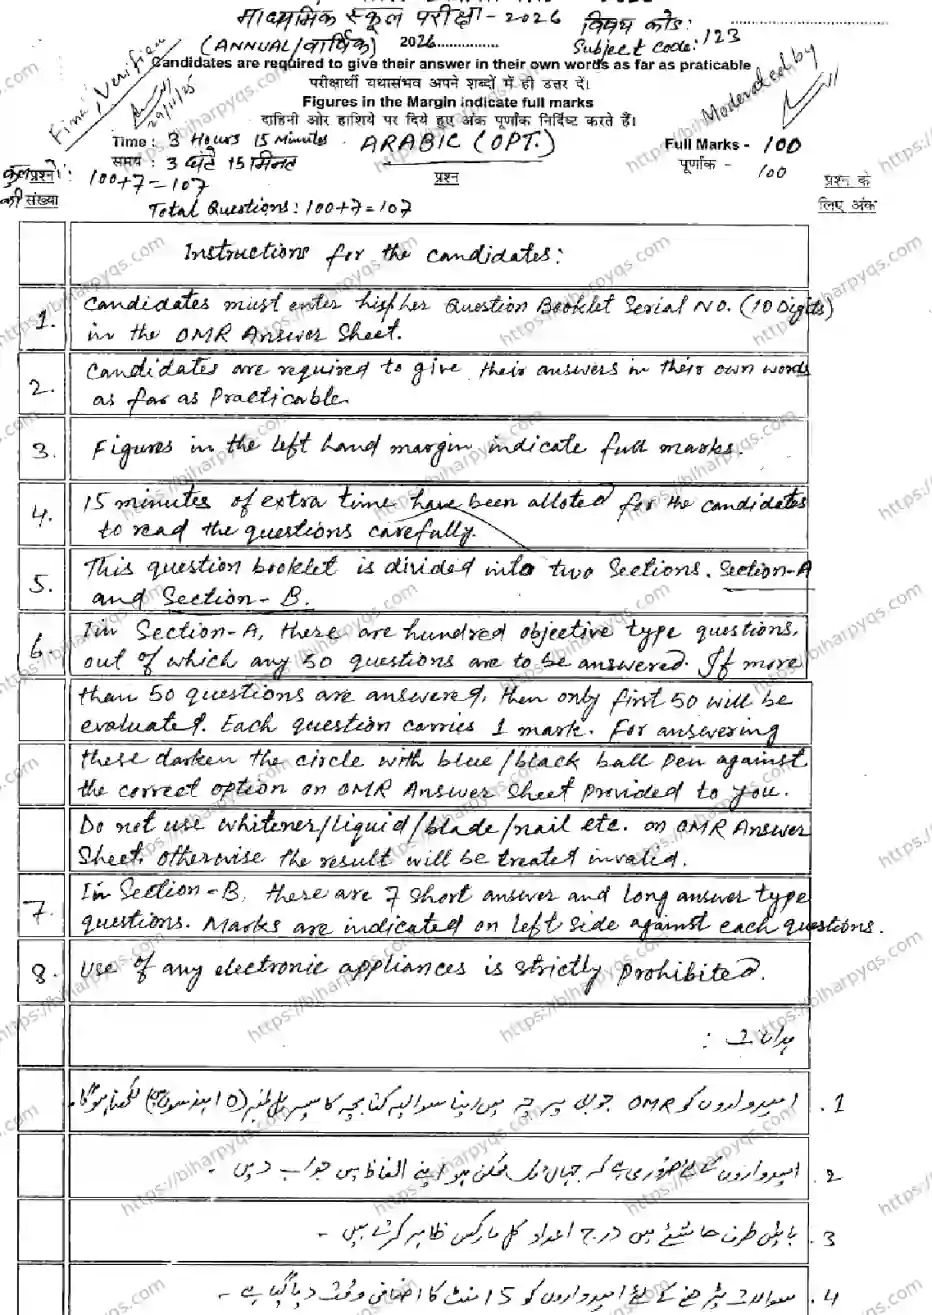 माध्यमिक स्कूल परीक्षा - 2026 विषय कोड:
(ANNUAL/वार्षिक) 2026 Subject code: 123
Candidates are required to give their answer in their own words as far as praticable
परीक्षार्थी यथासंभव अपने शब्दों में ही उत्तर दें।
Figures in the Margin indicate full marks
दाहिनी ओर हाशिये पर दिये हुए अंक पूर्णांक निर्दिष्ट करते हैं।
Final Verified
29/11/25
Moderated by
Time : 3 Hours 15 Minutes ARABIC (OPT.) Full Marks - 100
समय : 3 घंटे 15 मिनट पूर्णांक - 100
कुल प्रश्नों की संख्या : 100+7=107 प्रश्न प्रश्न के लिए अंक
Total Questions: 100+7=107
Instructions for the candidates:
1. Candidates must enter his/her Question Booklet Serial NO. (10 Digits)
in the OMR Answer Sheet.
2. Candidates are required to give their answers in their own words
as far as Practicable.
3. Figures in the left hand margin indicate full marks.
4. 15 minutes of extra time have been alloted for the candidates
to read the questions carefully.
5. This question booklet is divided into two Sections. Section-A
and Section-B.
6. In Section-A, there are hundred objective type questions,
out of which any 50 questions are to be answered. If more
than 50 questions are answered, then only first 50 will be
evaluated. Each question carries 1 mark. For answering
these darken the circle with blue/black ball pen against
the correct option on OMR Answer Sheet Provided to you.
Do not use whitener/liquid/blade/nail etc. on OMR Answer
Sheet, otherwise the result will be treated invalid.
7. In Section-B, there are 7 short answer and long answer type
questions. Marks are indicated on left side against each questions.
8. Use of any electronic appliances is strictly prohibited.
ہدایات :
1. امیدواروں کو OMR جوابی پرچہ میں اپنا سوالیہ کتابچہ کا سیریل نمبر (10 ہندسوں) لکھنا ہوگا۔
2. امیدواروں کے لئے ضروری ہے کہ جہاں تک ممکن ہو اپنے الفاظ میں جواب دیں۔
3. بائیں طرف حاشئے میں درج اعداد کل مارکس ظاہر کرتے ہیں۔
4. سوالات پڑھنے کے لئے امیدواروں کو 15 منٹ کا اضافی وقت دیا گیا ہے۔
https://biharpyqs.com